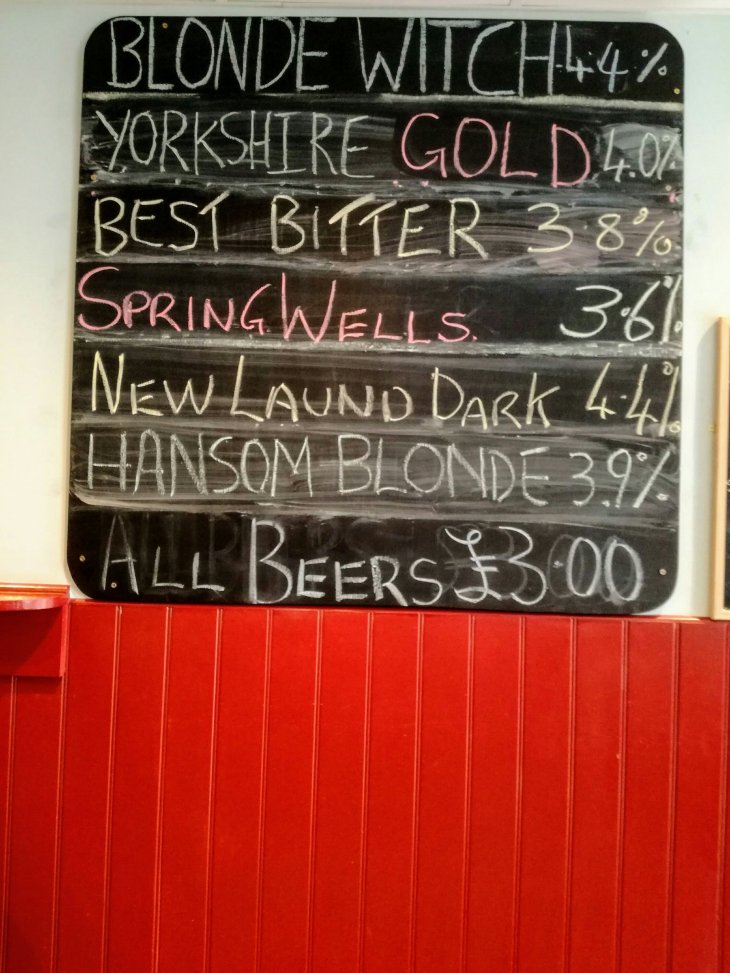 BLONDE WITCH 4.4%
YORKSHIRE GOLD 4.0%
BEST BITTER 3.8%
SPRING WELLS. 3.6%
NEW LAUND DARK 4.4%
HANSOM BLONDE 3.9%
ALL BEERS £3.00